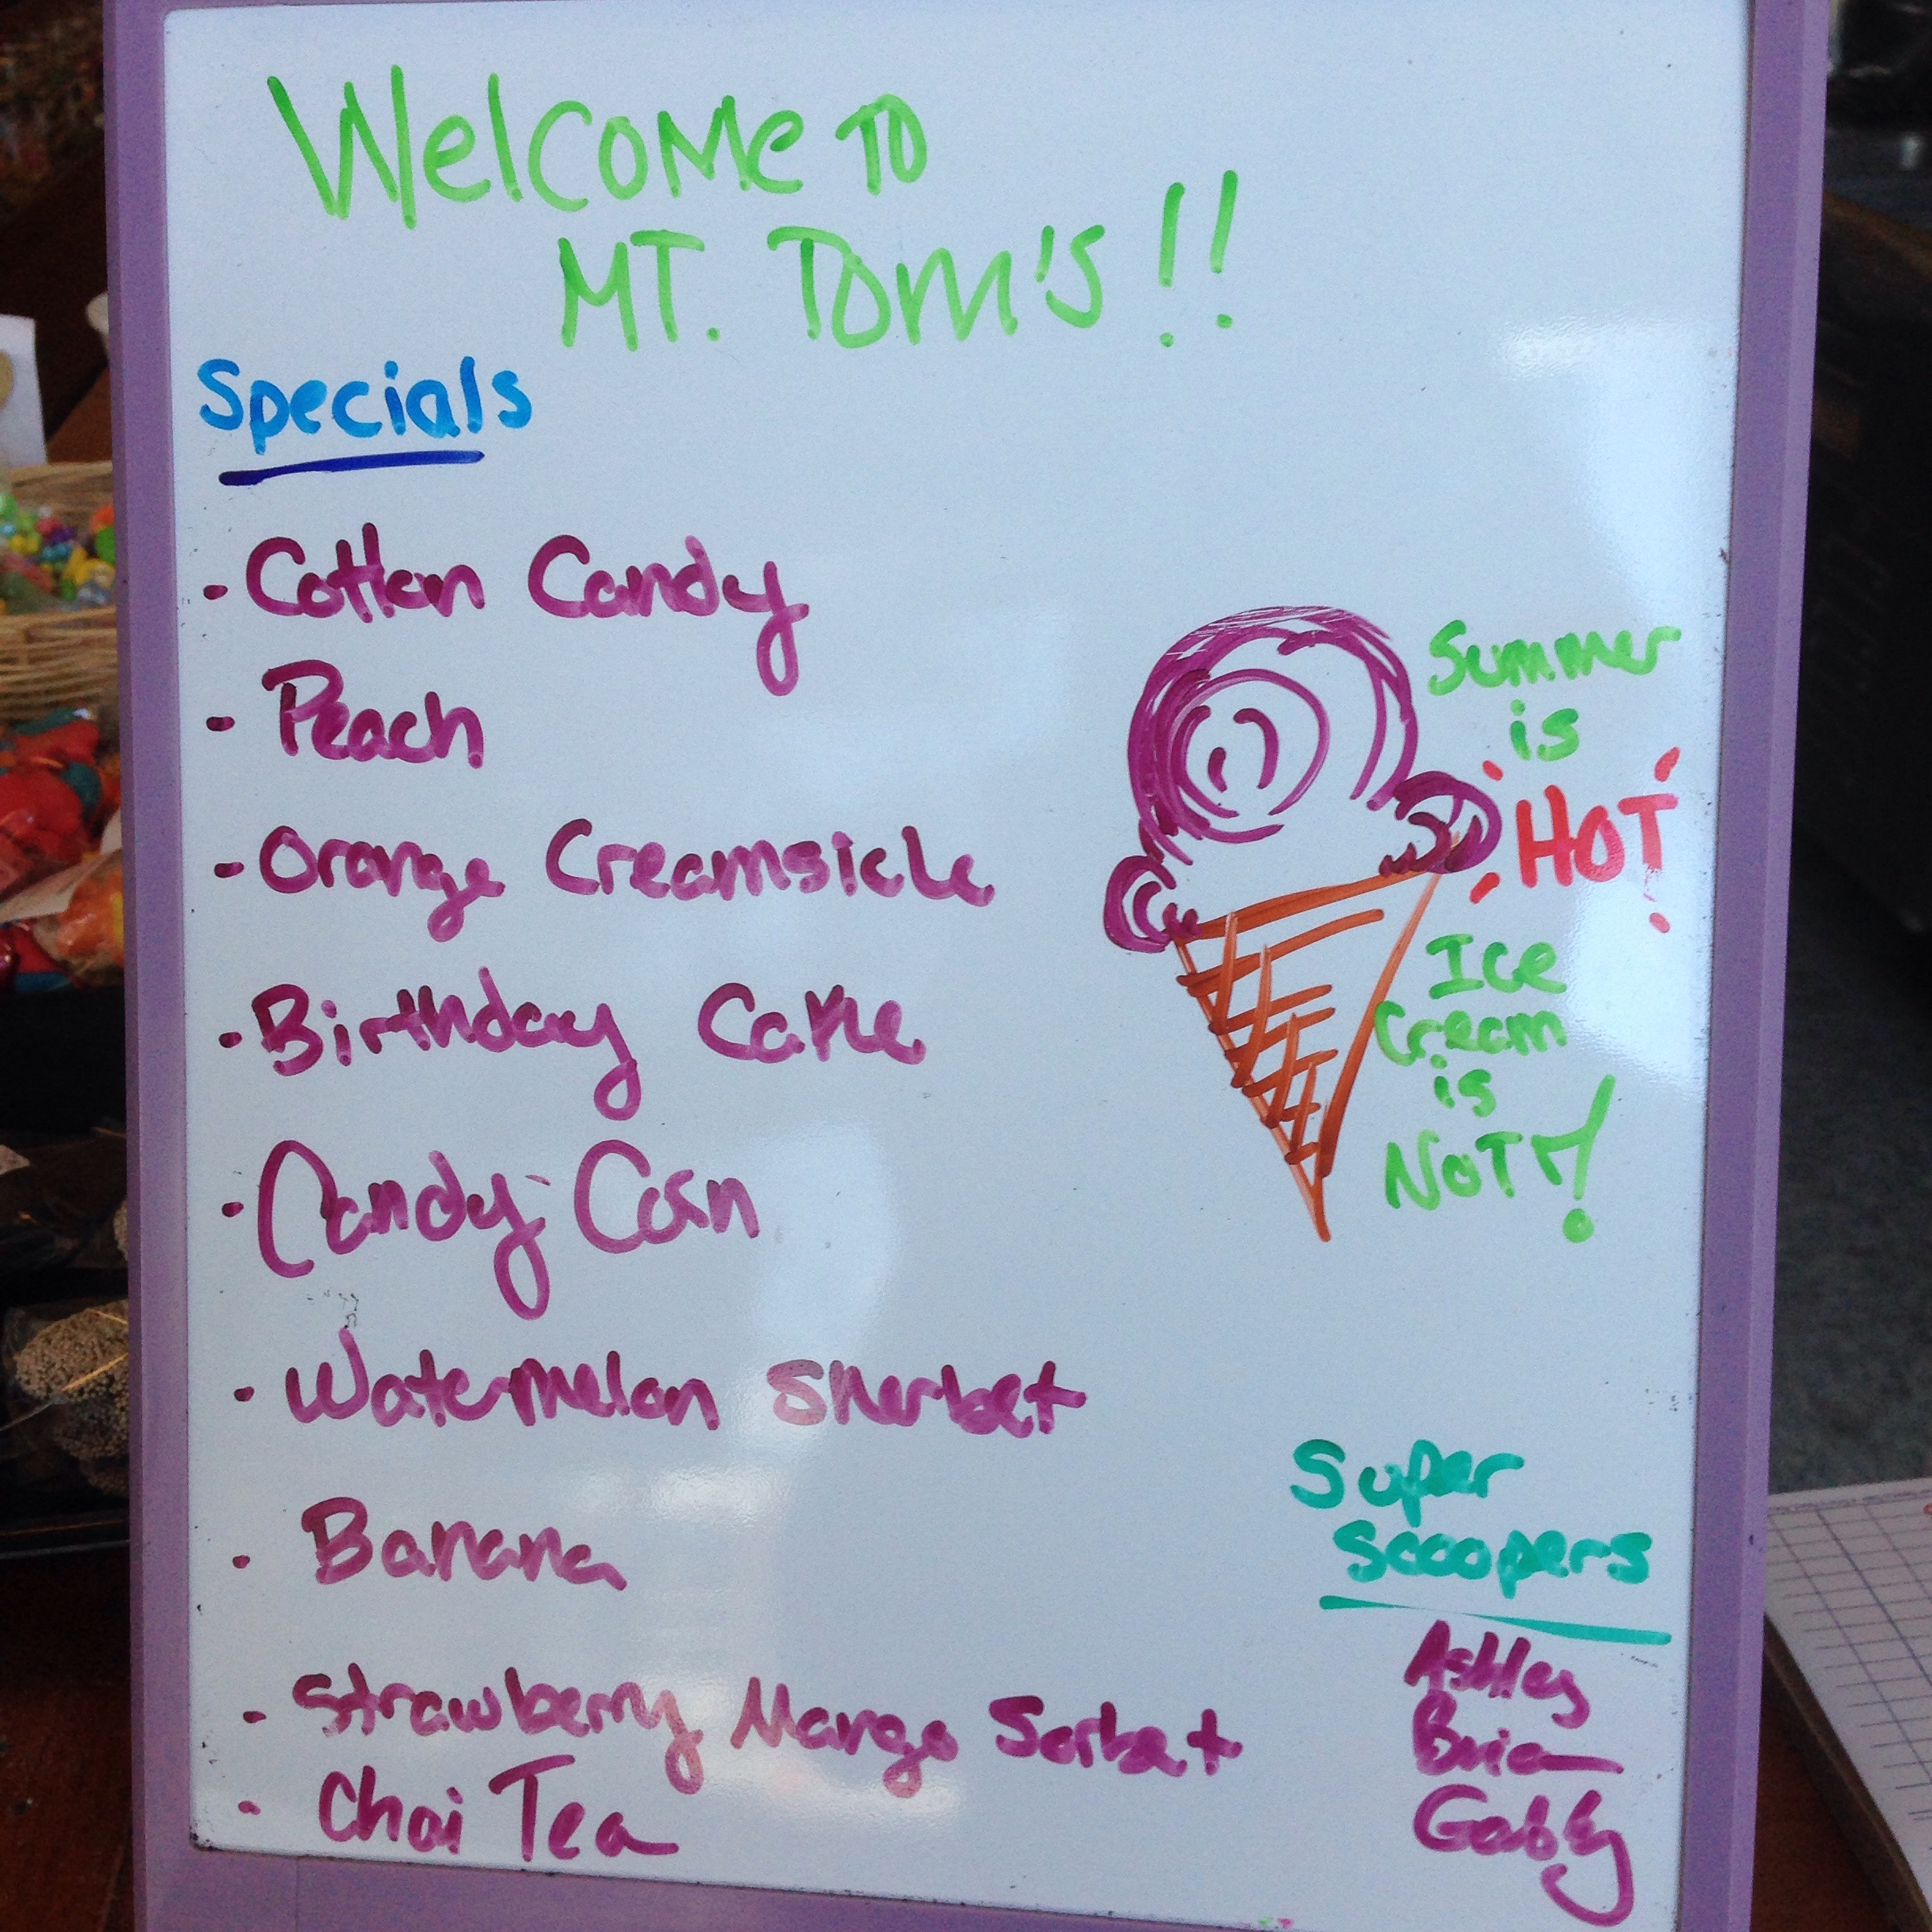 Welcome To
MT. Tom's!!
Specials
- Cotton Candy
- Peach
- Orange Creamsicle
- Birthday Cake
- Candy Corn
- Watermelon Sherbet
- Banana
- Strawberry Mango Sorbet
- Chai Tea
Summer
is
HOT
Ice
Cream
is
NOT!
Super
Scoopers
Ashley
Brian
Gabby